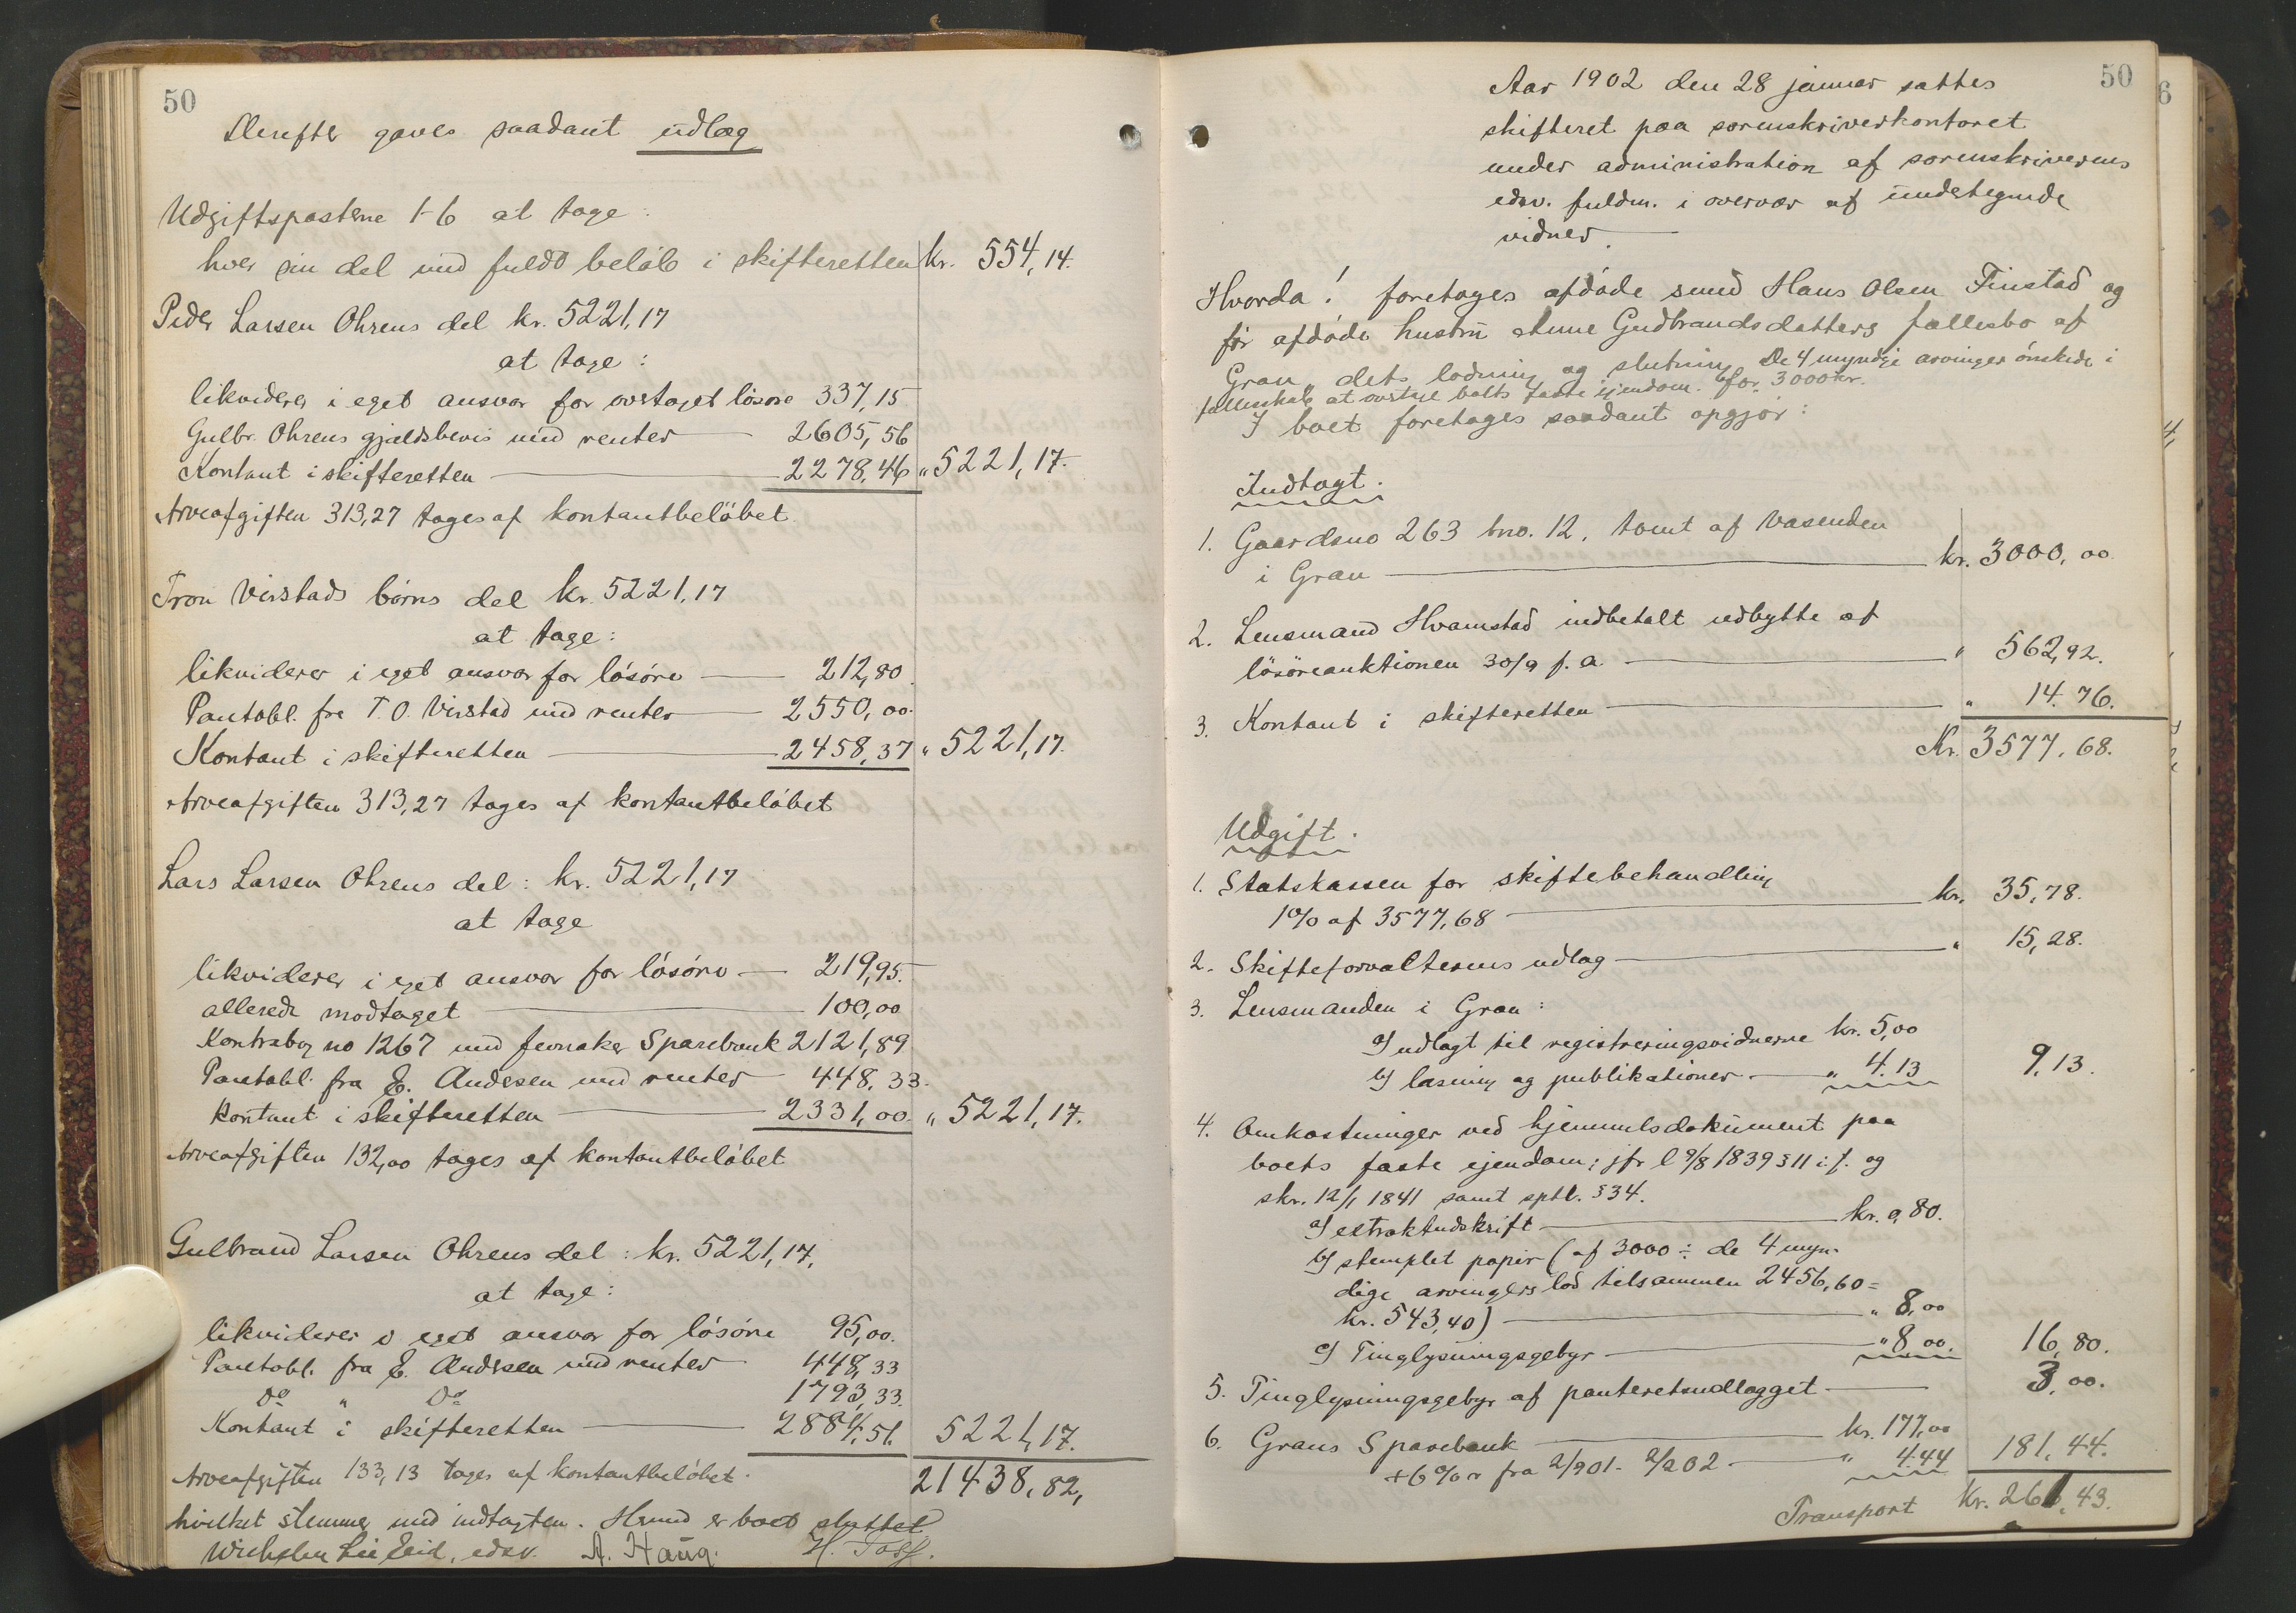 50
Derefter gaves saadant udlæg
Udgiftsposterne 1-6 at tage:
hver sin del med fuldt beløb i skifteretten kr. 554,14.
Peder Larsen Ohrens del kr. 5221,17
at tage:
likviderer i eget ansvar for overtaget løsøre 337,15
Gulbr. Ohrens gjældsbevis med renter 2605,56
Kontant i skifteretten 2278,46 " 5221,17.
Arveafgiften 313,27 tages af kontantbeløbet
Tron Virstads børns del kr. 5221,17
at tage:
likviderer i eget ansvar for løsøre 212,80
Pantobl. fra T. O. Virstad med renter 2550,00.
Kontant i skifteretten 2458,37 " 5221,17.
Arveafgiften 313,27 tages af kontantbeløbet
Lars Larsen Ohrens del: kr. 5221,17
at tage
likviderer i eget ansvar for løsøre 219,95.
allerede modtaget 100,00
Kontrabog no 1267 med Jevnaker Sparebank 2121,89
Pantobl. fra E. Andersen med renter 448,33.
Kontant i skifteretten 2331,00. " 5221,17.
Arveafgiften 132,00 tages af kontantbeløbet
Gulbrand Larsen Ohrens del: kr. 5221,17,
at tage:
likviderer i eget ansvar for løsøre 95,00.
Pantobl. fra E. Andersen med renter 448,33
Do " Do 1793,33.
Kontant i skifteretten 2884,51. 5221,17.
Arveafgiften 133,13 tages af kontantbeløbet. 21438,82,
hvilket stemmer med indtægten. Hermed er boet sluttet
Lie Eid, edsv. A. Haug. H.
50
6
Aar 1902 den 28 januar sattes
skifteret paa sorenskriverkontoret
under administration af sorenskriverens
edsv. fuldm. i overvær af undertegnede
vidner.
Hvorda! foretages afdøde smed Hans Olsen Finstad og
før afdøde hustru Anne Gudbrandsdatters fællesbo af
Gran, dets lodning og slutning. De 4 myndige arvinger ønskede i
fællesskab at overtage boets faste ejendom for 3000 kr.
I boet foretages saadant opgjør:
Indtægt.
1. Gaardsno 263 bno. 12, tomt af Vasenden
i Gran kr. 3000,00
2. Lensmand Hvamstad indbetalt udbytte af
løsøreauktionen 30/9 f. a. " 562,92.
3. Kontant i skifteretten " 14.76.
Kr. 3577,68.
Udgift.
1. Statskassen for skiftebehandling
1% af 3577,68 kr. 35,78.
2. Skifteforvalterens udlæg " 15,28.
3. Lensmanden i Gran:
a) udlagt til registreringsvidnerne kr. 5,00
b) læsning og publikationer " 4.13 9,13.
4. Omkostninger ved hjemmelsdokument paa
boets faste ejendom; jfr l 9/8 1839 § 11 i. f. og
skr. 12/1 1841 samt sptl. § 34.
a) extraktudskrift kr. 0,80.
b) stemplet papir (af 3000 ÷ de 4 myn-
dige arvingers lod tilsammen 2456,60 =
kr. 543,40) " 8,00
c) Tinglysningsgebyr " 8 00. 16,80.
5. Tinglysningsgebyr af panteretsudlægget 3,00.
6. Grans Sparebank kr. 177,00
+ 6% r fra 2/9 01 - 2/2 02 " 4.44 181,44.
Transport Kr. 261,43.